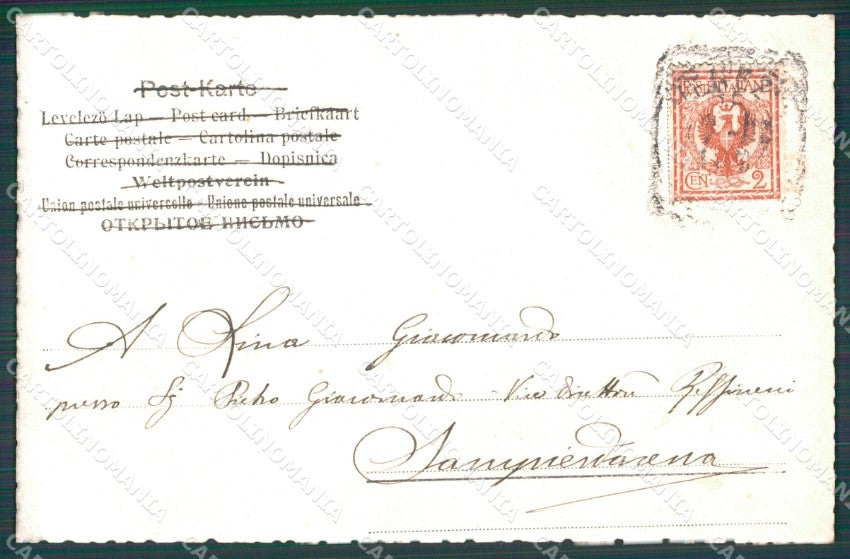 Post-Karte
Levelező-Lap — Post card — Briefkaart
Carte postale — Cartolina postale
Correspondenzkarte — Dopisnica
Weltpostverein
Union postale universelle - Unione postale universale
ОТКРЫТОЕ ПИСЬМО
CEN. 2
A Rina Giacomardo
presso Sg Pietro Giacomardo - Vice Direttore Raffineni
Sampierdarena
CARTOLINOMANIA